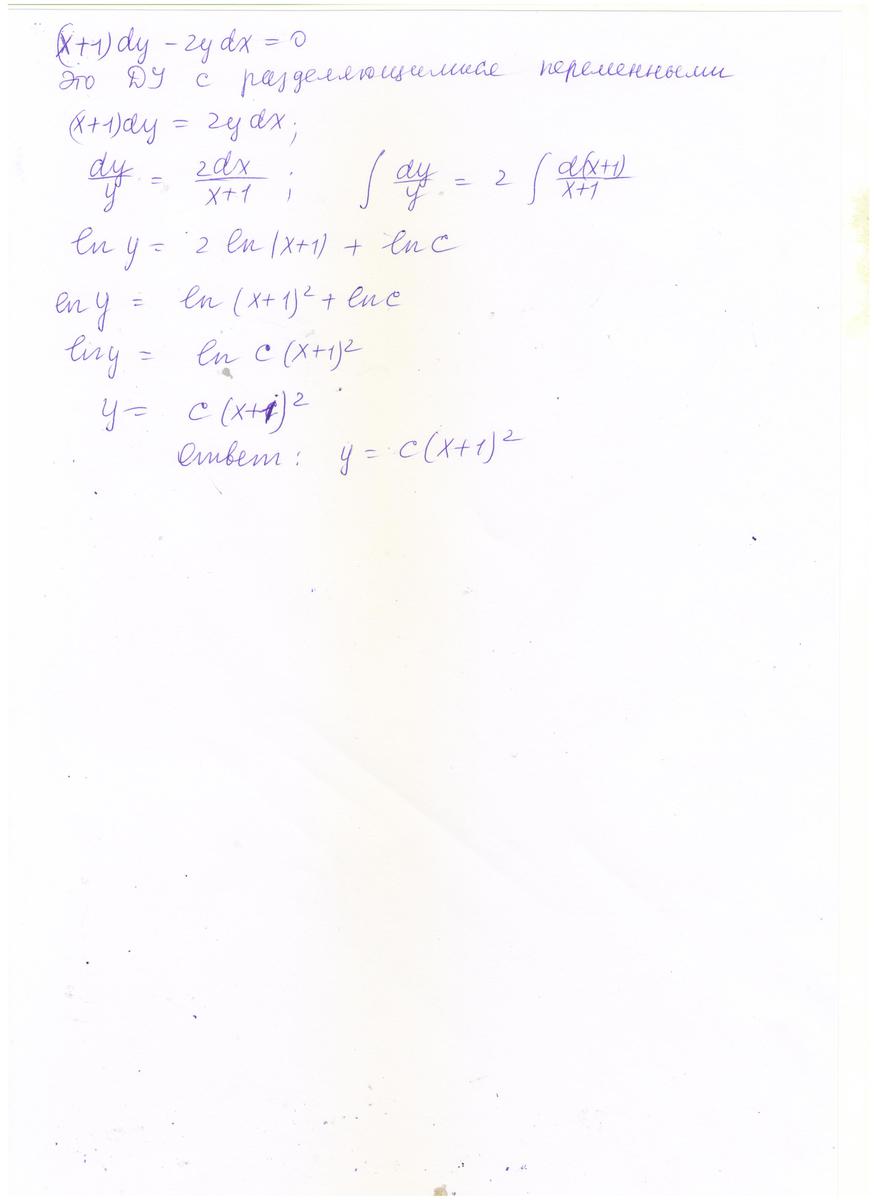 (x+1)dy - 2y dx = 0
Это ДУ с разделяющимися переменными
(x+1)dy = 2y dx;
dy/y = 2dx/x+1 ; ∫ dy/y = 2 ∫ d(x+1)/x+1
ln y = 2 ln(x+1) + ln C
ln y = ln (x+1)² + ln c
ln y = ln C (x+1)²
y = C (x+1)²
Ответ: y = C(x+1)²